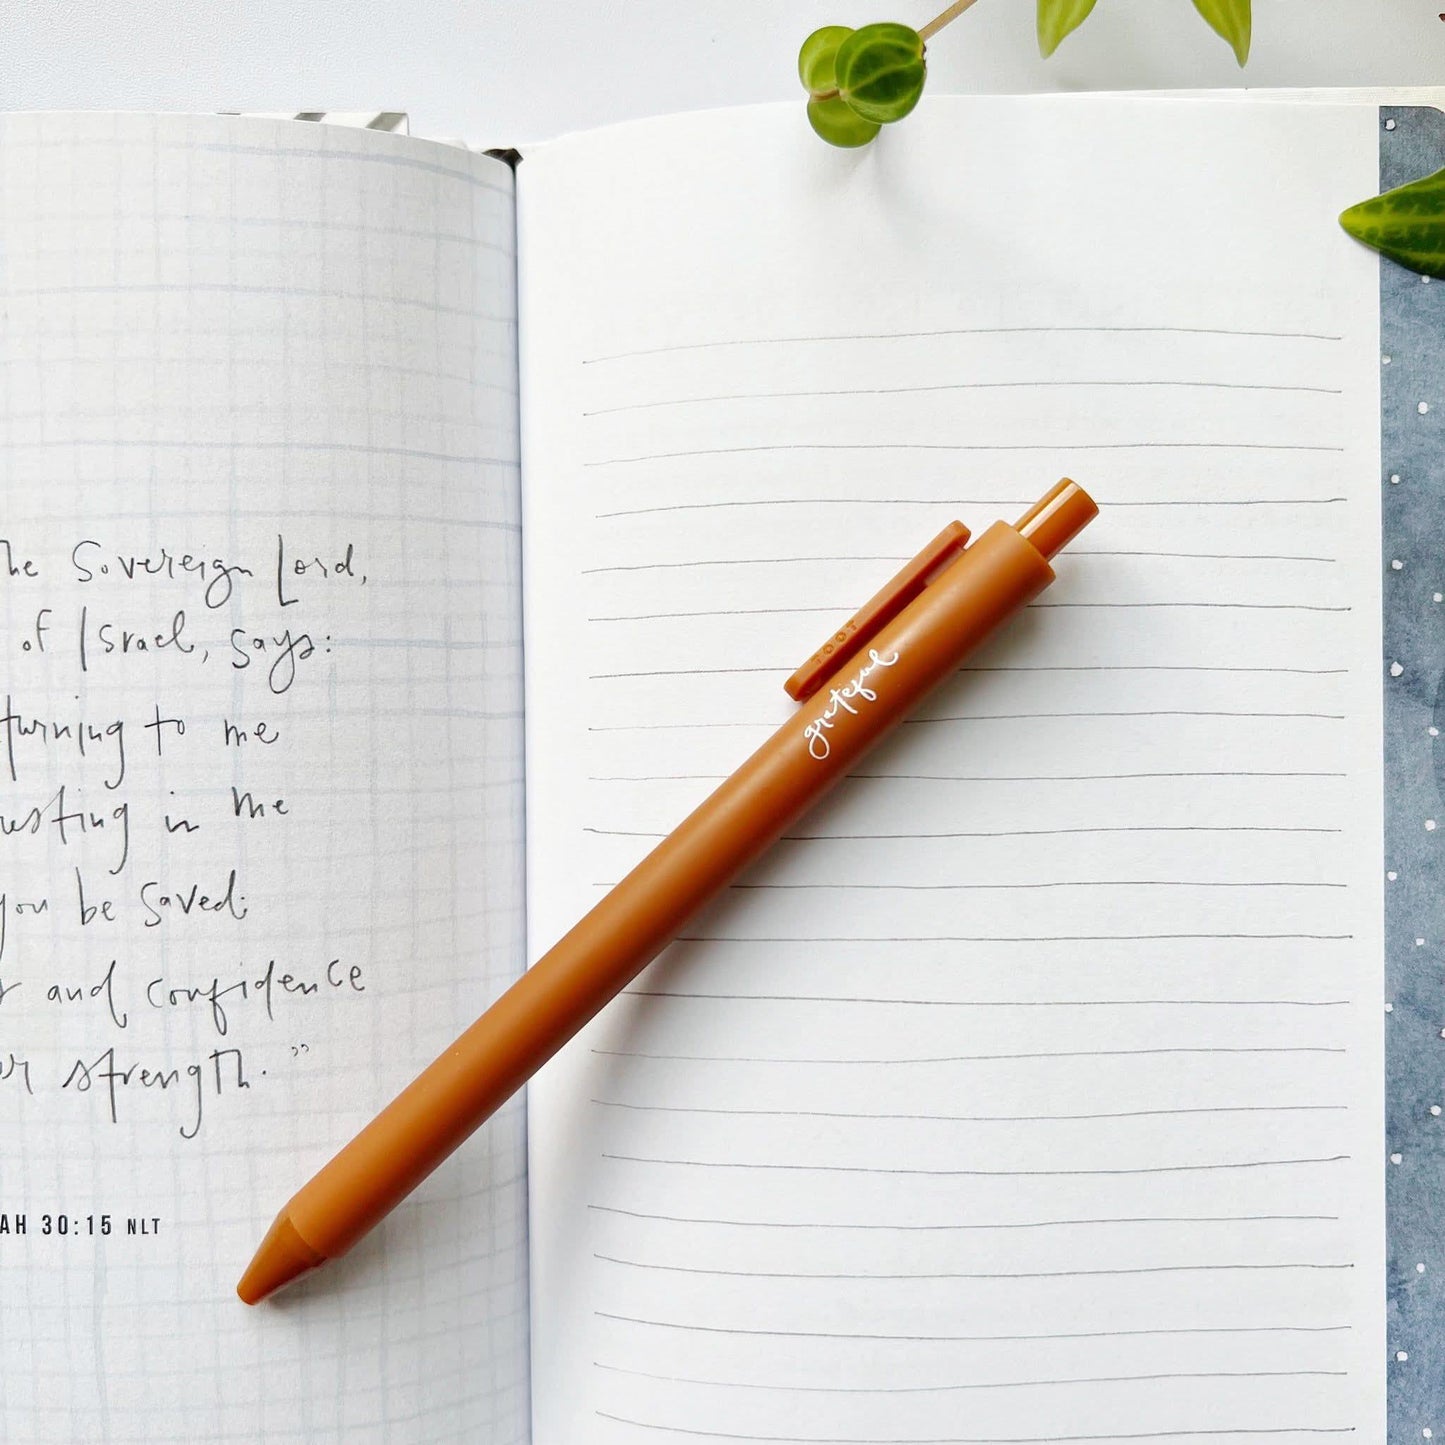 he Sovereign Lord,
of Israel, says:
turning to me
esting in me
you be saved;
and confidence
or strength."
AH 30:15 NLT
TOOT
grateful